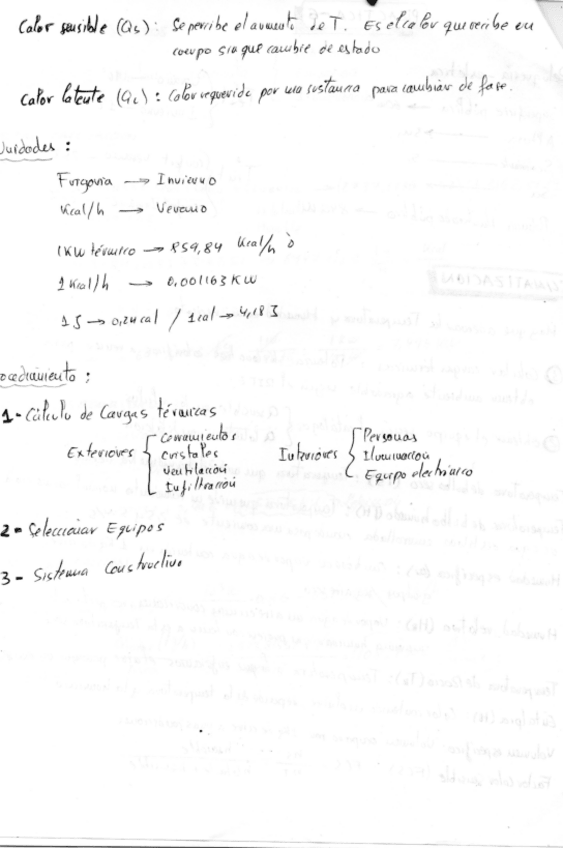 Calor sensible (Qs): Se percibe el aumento de T. Es el calor que recibe en
cuerpo sin que cambie de estado
Calor latente (QL): Calor requerido por una sustancia para cambiar de fase.
Unidades:
Furgovia → Invierno
Kcal/h → Verano
1KW térmico → 859,84 Kcal/h ó
1 Kcal/h → 0,001163 KW
1 J → 0,24 cal / 1 cal → 4,18 J
ocedimiento:
1- Cálculo de Cargas térmicas
Exteriores { Cerramientos
cristales
ventilación
Infiltración
Interiores { Personas
Iluminación
Equipo electrónico
2- Seleccionar Equipos
3- Sistema Constructivo